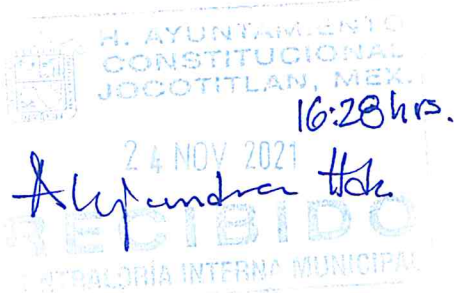 H. AYUNTAMIENTO
CONSTITUCIONAL
JOCOTITLAN, MEX.
16:28 hrs.
24 NOV 2021
Alejandra Hdz.
RECIBIDO
CONTRALORÍA INTERNA MUNICIPAL